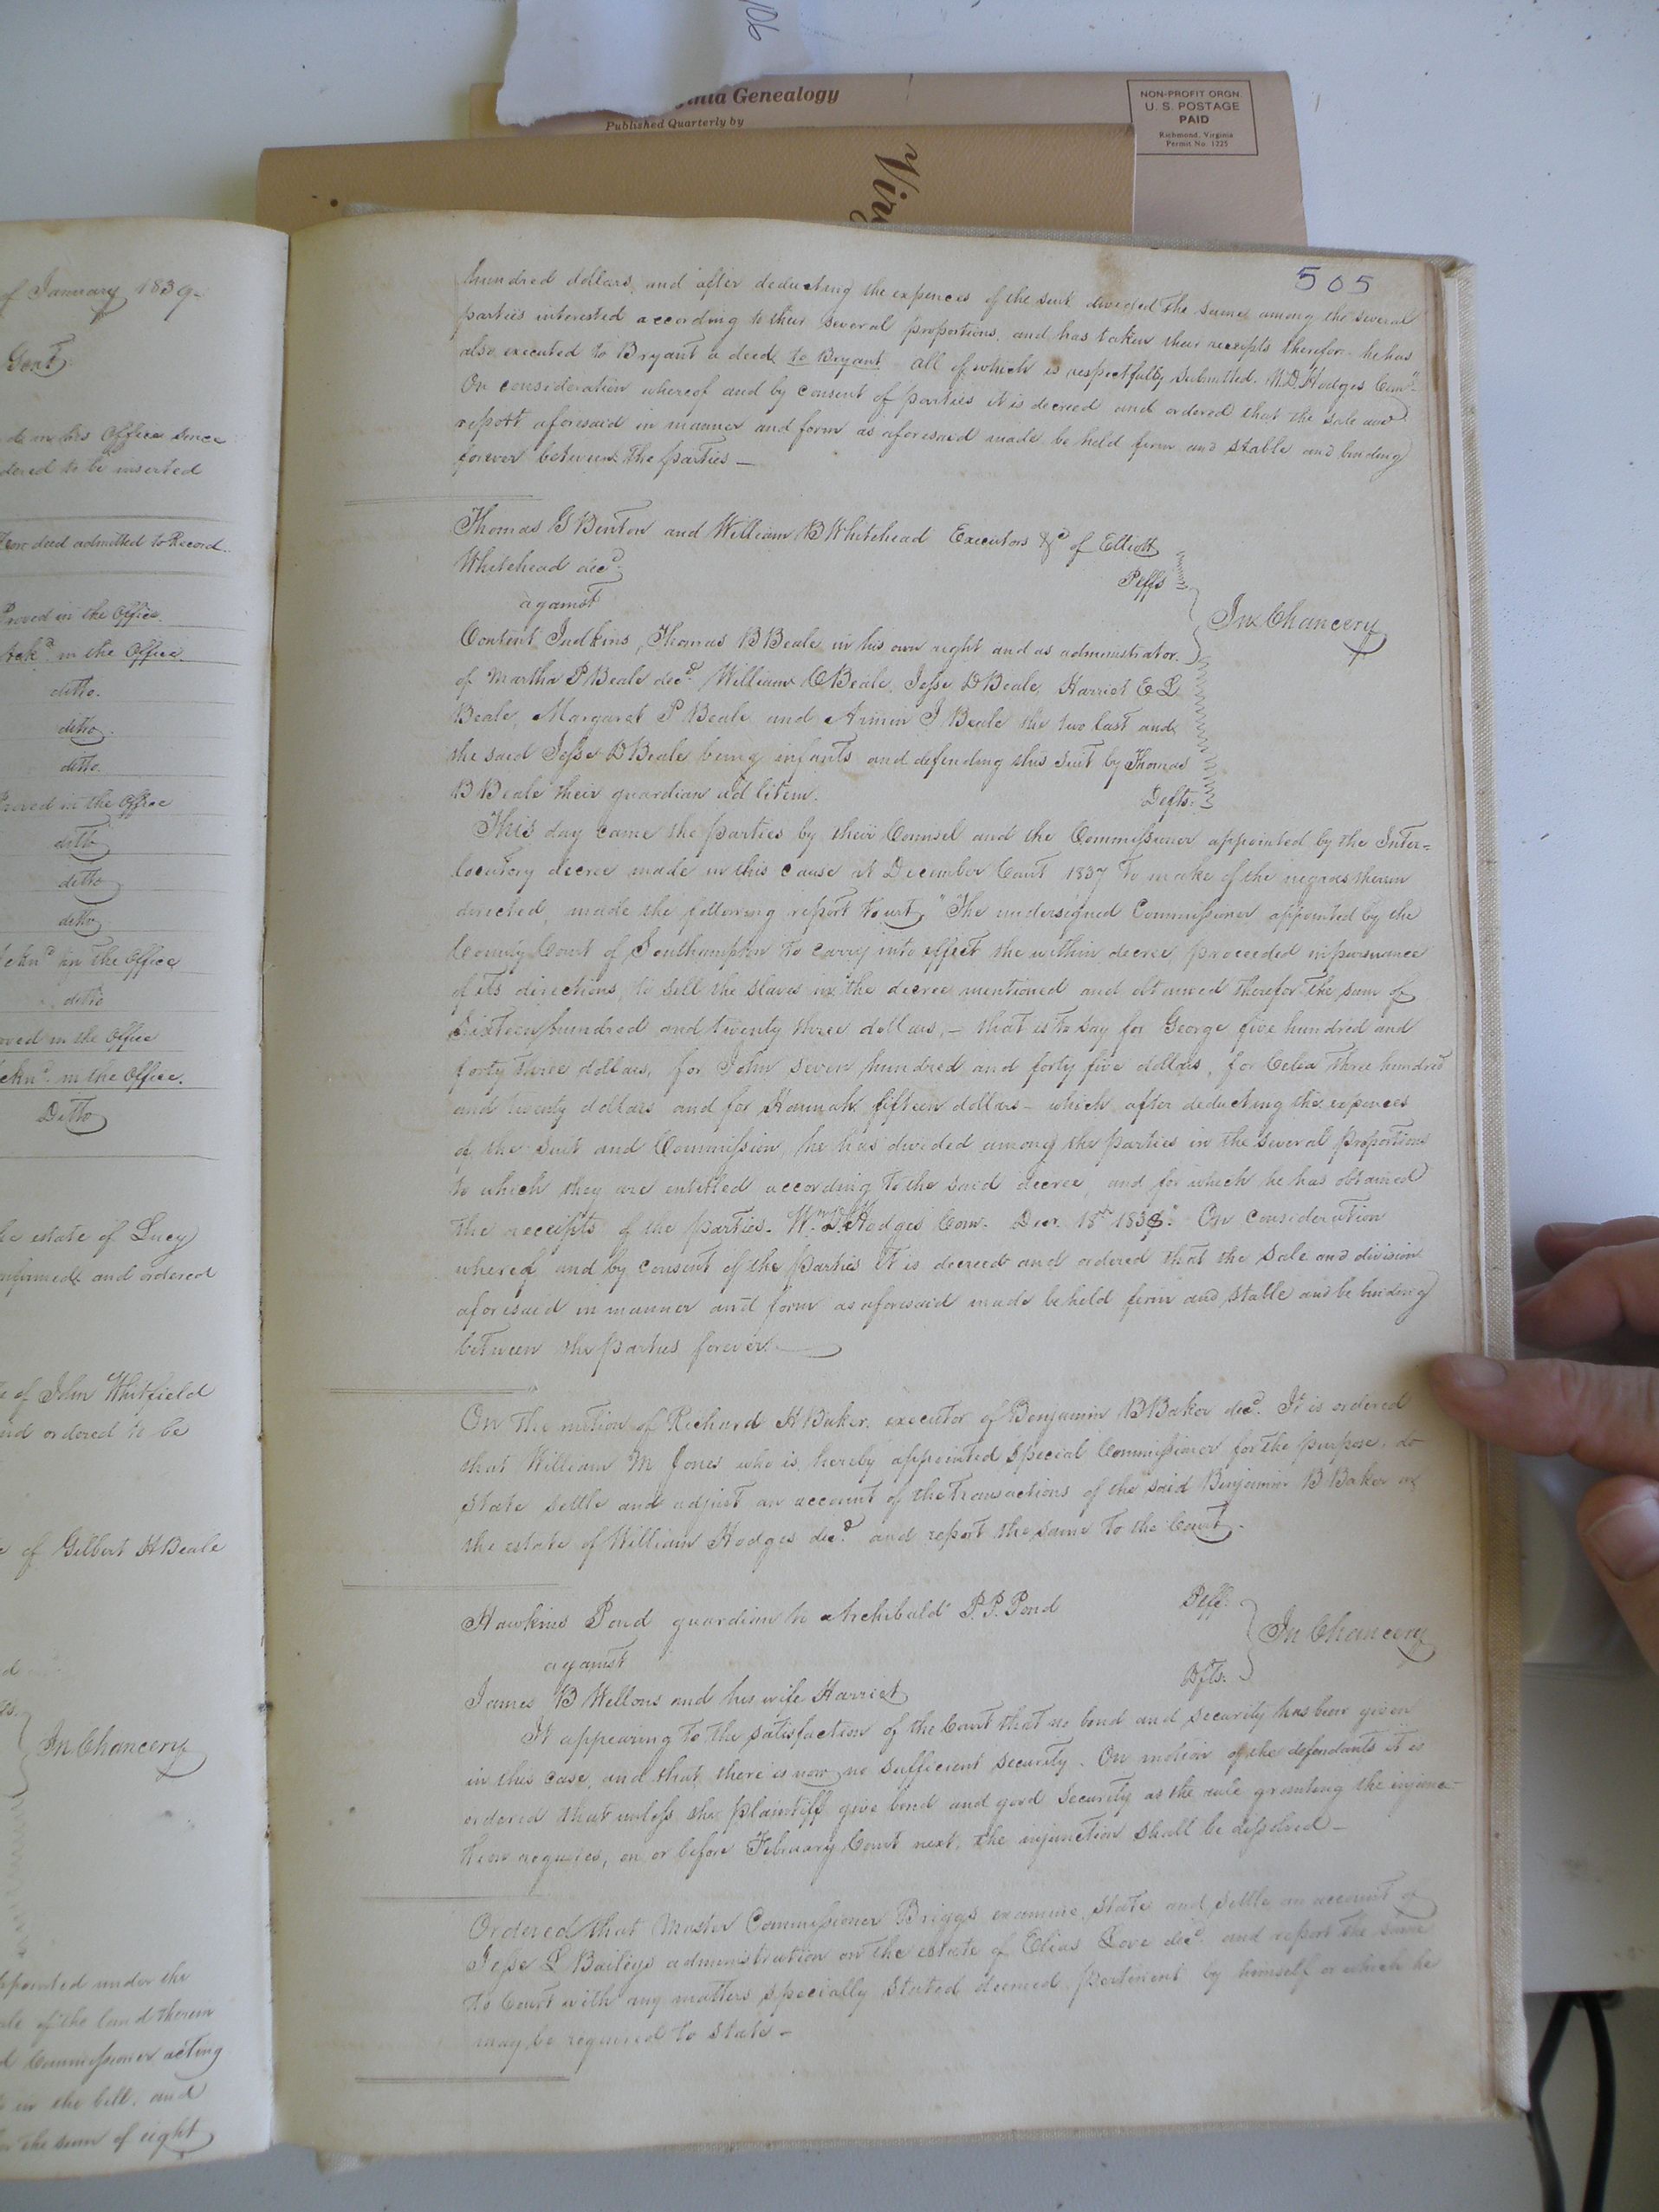 90
inia Genealogy
Published Quarterly by
NON-PROFIT ORGN.
U. S. POSTAGE
PAID
Richmond, Virginia
Permit No. 1225
Vir
of January 1839-
Gent.
de in his Office since
dered to be inserted
deed admitted to Record.
Proved in the Office.
Ackd. in the Office.
ditto.
ditto.
ditto.
Proved in the Office
ditto
ditto
ditto
in the Office
ditto
oved in the Office
in the Office.
Ditto
he estate of Lucy
nfirmed and ordered
e of John Whitfield
nd ordered to be
e of Gilbert H Beale
In Chancery
ppointed under the
ale of the land therein
d Commissioner acting
in the bill, and
the sum of eight
505
hundred dollars, and after deducting the expences of the suit divided the same among the several
parties interested according to their several proportions, and has taken their receipts therefor. he has
also executed to Bryant a deed to Bryant all of which is respectfully submitted. W.D. Hodges Comr.
On consideration whereof and by consent of parties it is decreed and ordered that the sale and
report aforesaid in manner and form as aforesaid made be held firm and stable and binding
forever between the parties —
Thomas G Benton and William B Whitehead Executors &c of Elliott
Whitehead decd.
Plffs
against
In Chancery
Content Judkins, Thomas B Beale in his own right and as administrator
of Martha P Beale decd. William C Beale, Jesse D Beale, Harriet E L
Beale, Margaret P Beale and Armin J Beale the two last and
the said Jesse D Beale being infants and defending this suit by Thomas
B Beale their guardian ad litem.
Defts.
This day came the parties by their Counsel and the Commissioner appointed by the Inter=
locutory decree made in this cause at December Court 1837 to make of the negroes therein
directed, made the following report towit, "The undersigned Commissioner appointed by the
County Court of Southampton to carry into effect the within decree, proceeded in pursuance
of its directions, to sell the slaves in the decree mentioned and obtained therefor the sum of
Sixteen hundred and twenty three dollars, - that is to say for George five hundred and
forty three dollars, for John seven hundred and forty five dollars, for Celea three hundred
and twenty dollars and for Hannah fifteen dollars - which after deducting the expences
of the suit and Commission, he has divided among the parties in the several proportions
to which they are entitled according to the said decree, and for which he has obtained
the receipts of the parties. Wm. D. Hodges Com. Decr. 18th 1838." On consideration
whereof and by consent of the parties it is decreed and ordered that the sale and division
aforesaid in manner and form as aforesaid made be held firm and stable and be binding
between the parties forever. —
On the motion of Richard H Baker, executor of Benjamin B Baker decd. It is ordered
that William M Jones who is hereby appointed special Commissioner for the purpose, do
state settle and adjust an account of the transactions of the said Benjamin B Baker
the estate of William Hodges decd. and report the same to the Court.
Hawkins Pond guardian to Archibald P. P. Pond
Plff.
against
In Chancery
James B Wellons and his wife Harriet
Dfts.
It appearing to the satisfaction of the Court that no bond and security has been given
in this case, and that there is now no sufficient security. On motion of the defendants it is
ordered that unless the plaintiff give bond and good security as the rule granting the injunc-
tion requires, on or before February Court next, the injunction shall be dissolved —
Ordered that Master Commissioner Briggs examine, state and settle an account of
Jesse L Baileys administration on the estate of Elias Cove decd. and report the same
to Court with any matters specially stated deemed pertinent by himself or which he
may be required to state —